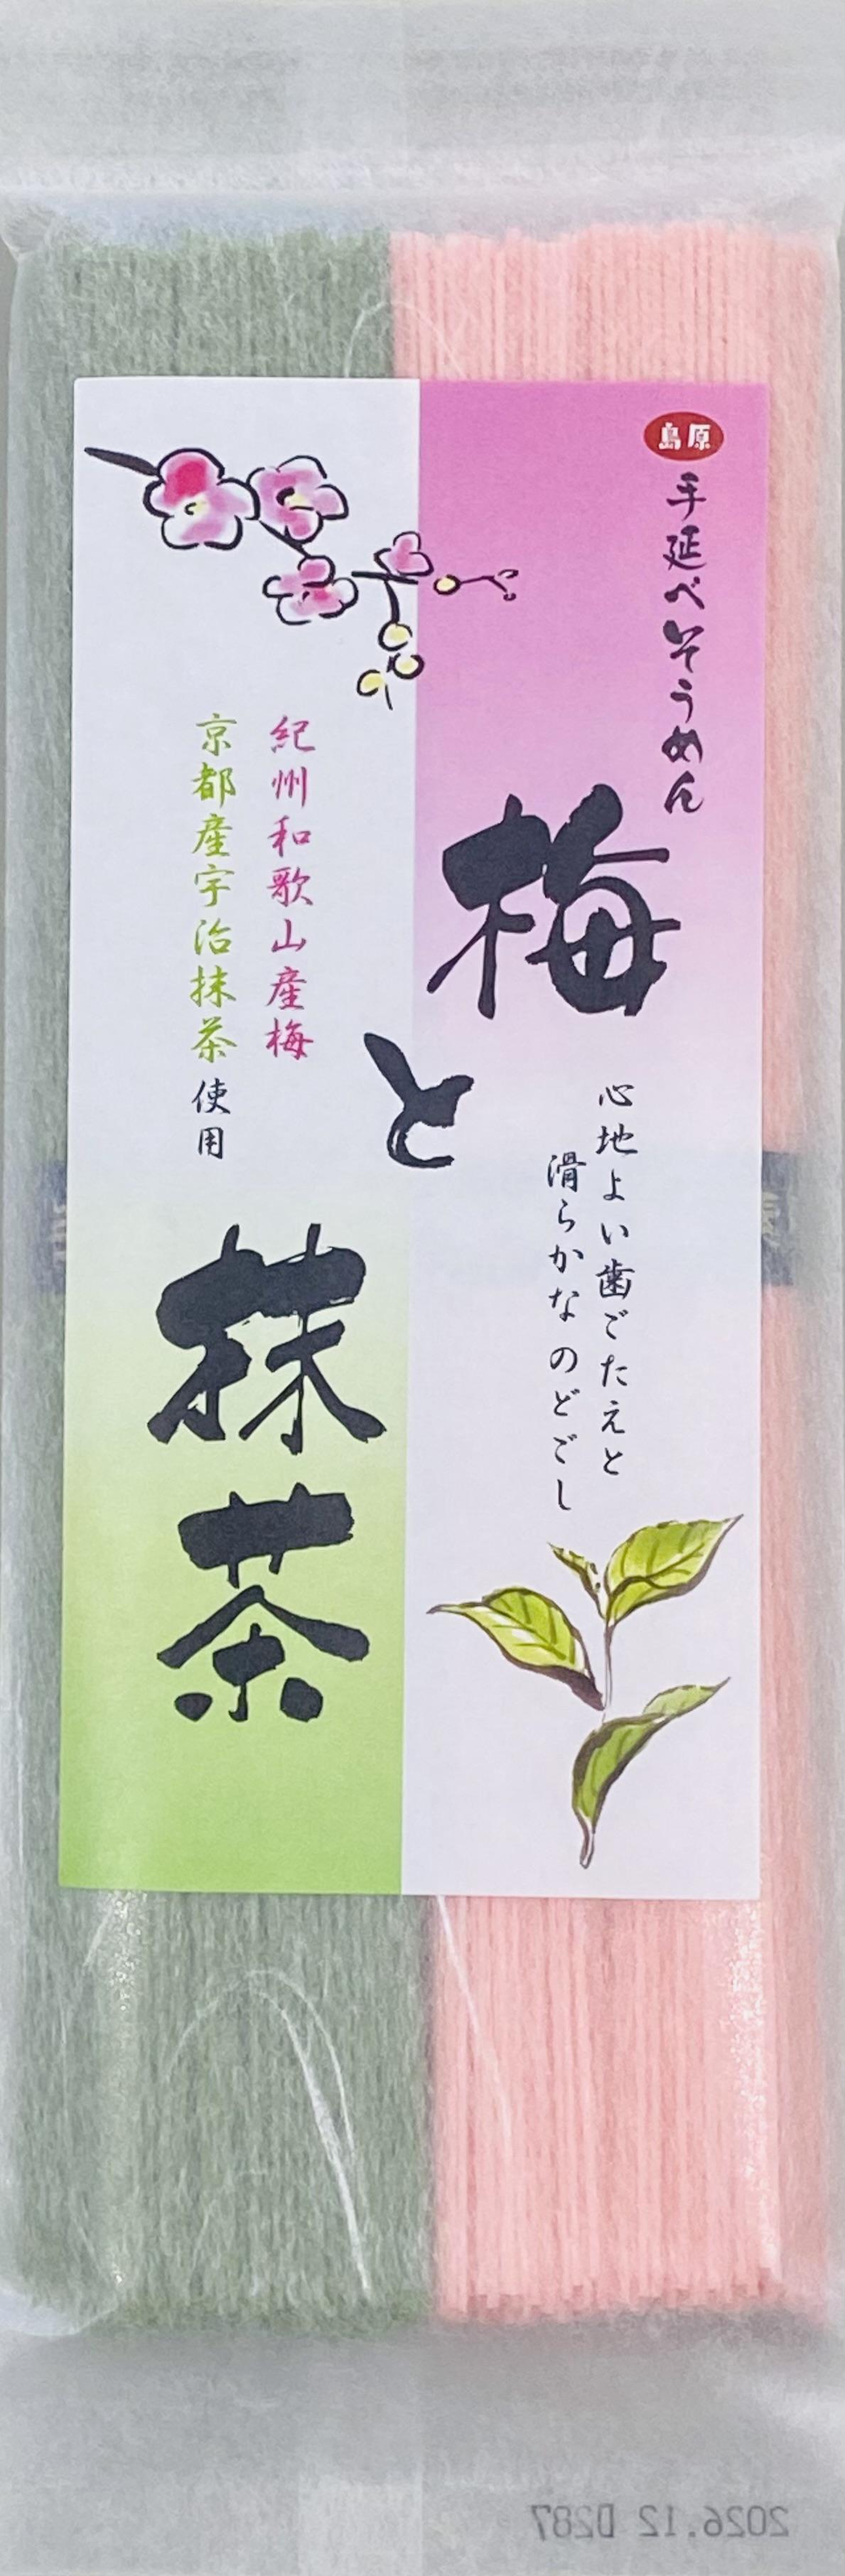 島原
手延べそうめん
梅
と
抹茶
心地よい歯ごたえと
滑らかなのどごし
紀州和歌山産梅
京都産宇治抹茶使用
2026.12 D287